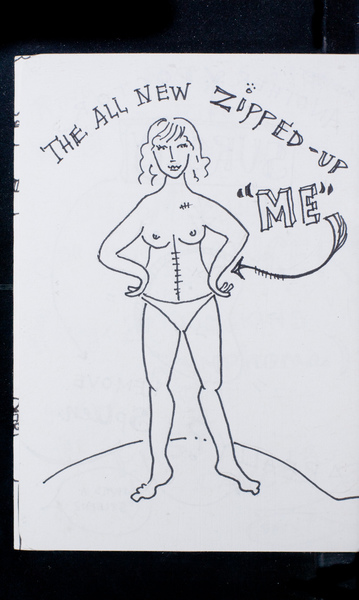 THE ALL NEW ZIPPED-UP
"ME"